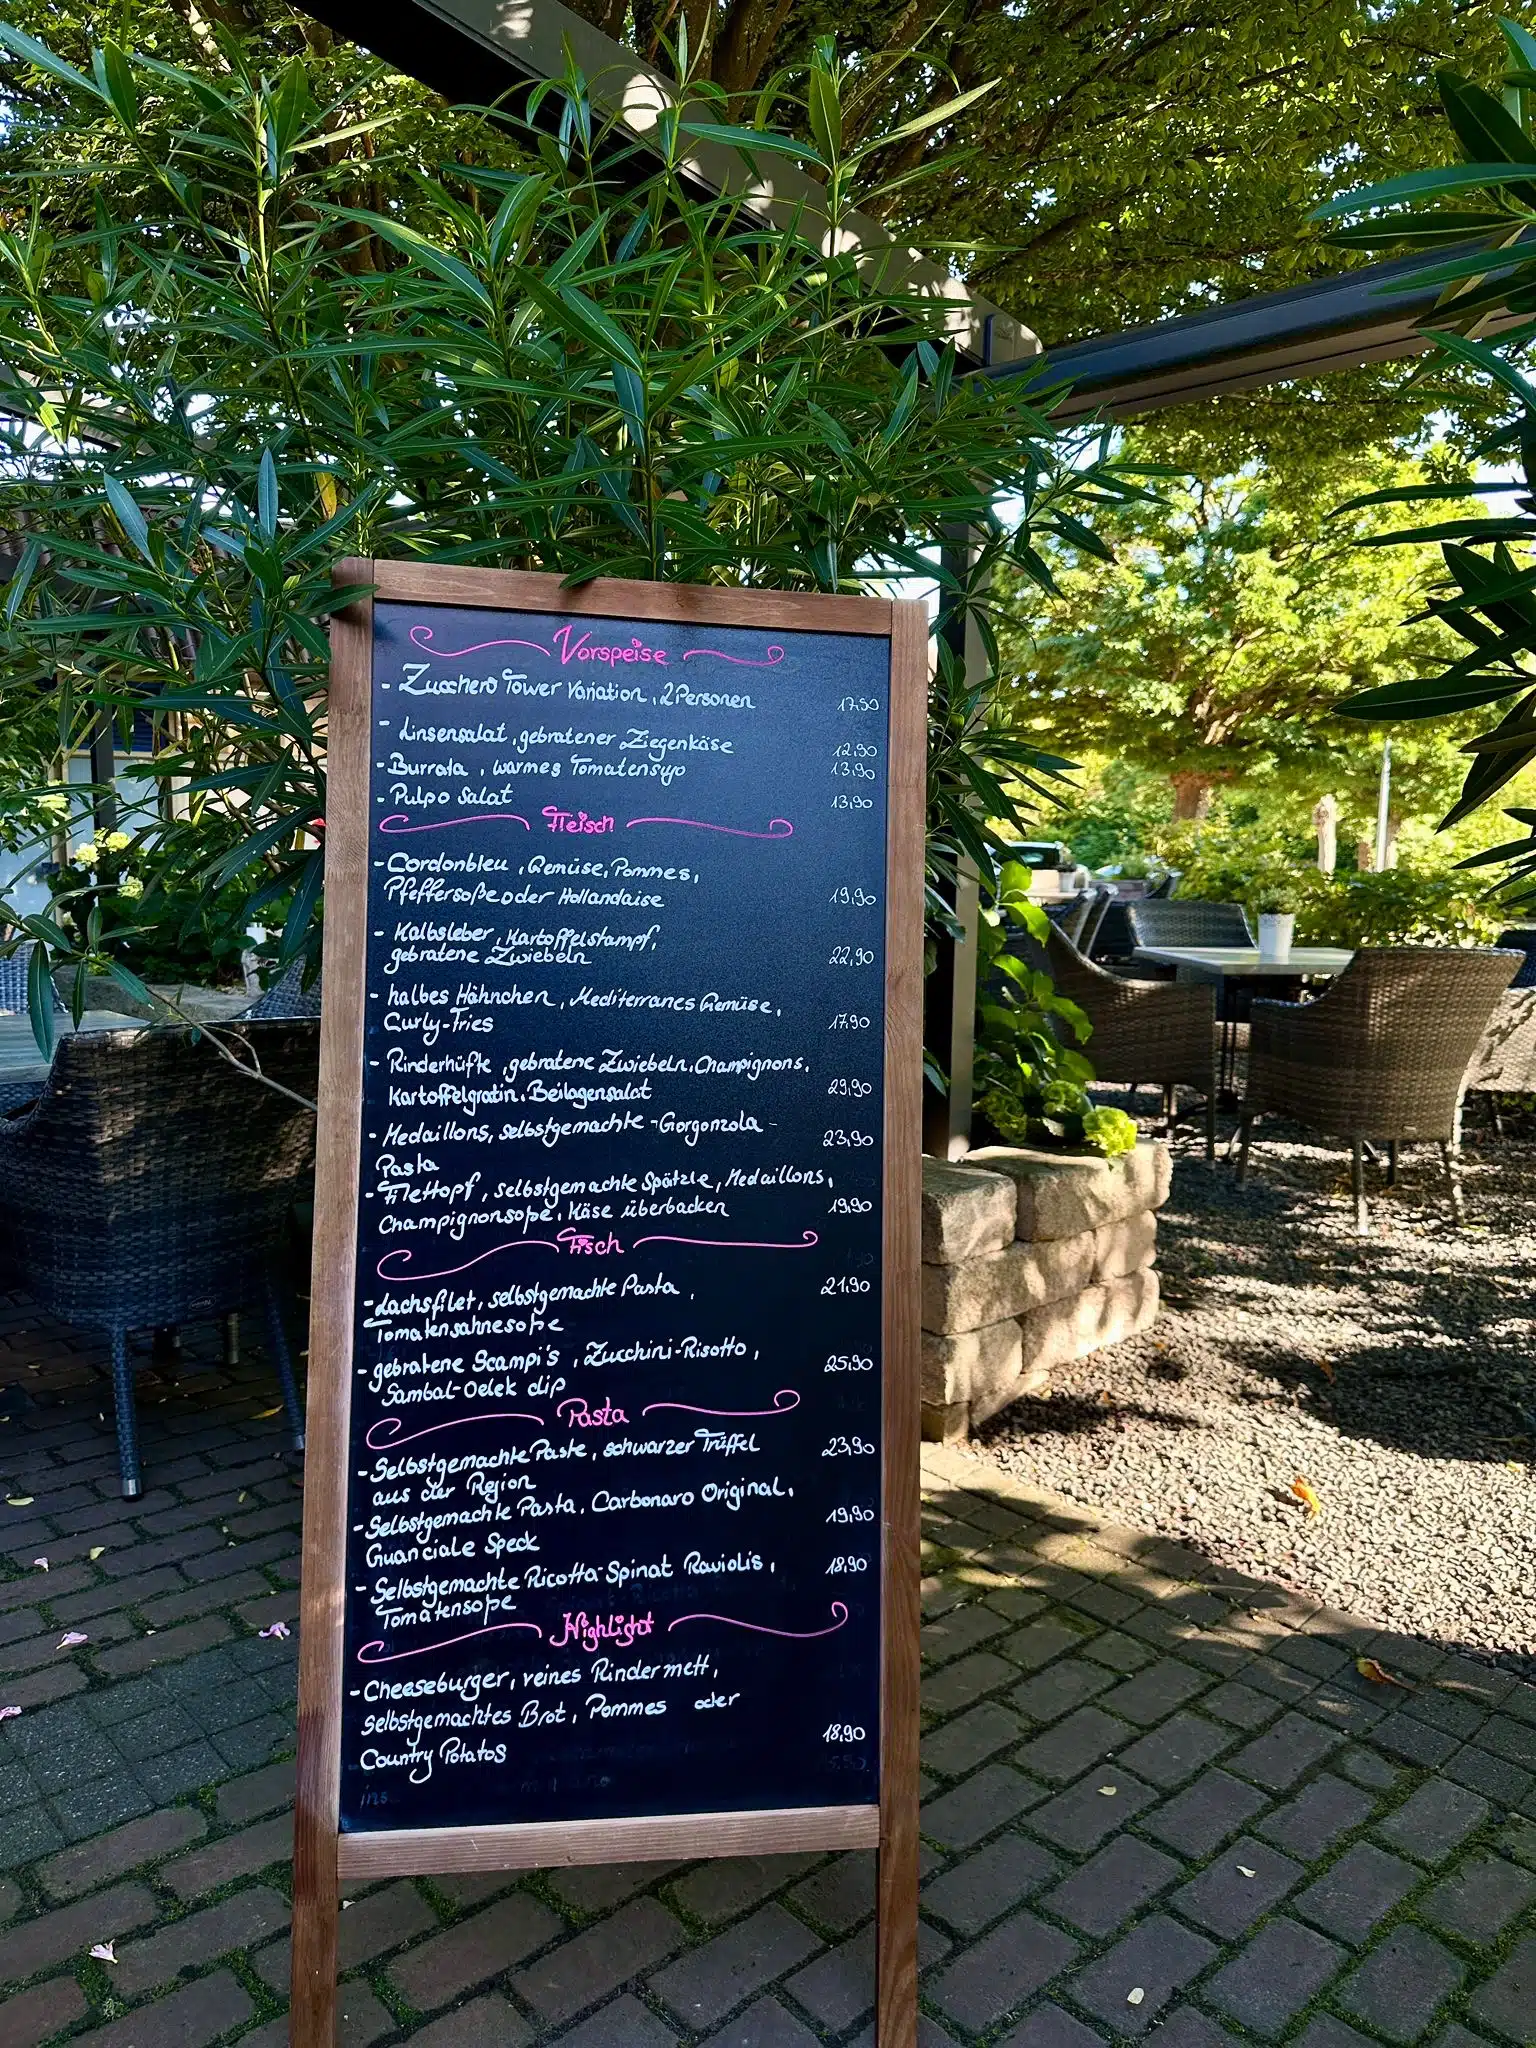 Vorspeise
- Zucchero Tower Variation, 2 Personen 17,50
- Linsensalat, gebratener Ziegenkäse 12,90
- Burrata, warmes Tomatensugo 13,90
- Pulpo Salat 13,90
Fleisch
- Cordonbleu, Gemüse, Pommes,
Pfeffersoße oder Hollandaise 19,90
- Kalbsleber, Kartoffelstampf,
gebratene Zwiebeln 22,90
- halbes Hähnchen, Mediterranes Gemüse,
Curly-Fries 17,90
- Rinderhüfte, gebratene Zwiebeln, Champignons,
Kartoffelgratin, Beilagensalat 29,90
- Medaillons, selbstgemachte -Gorgonzola - 23,90
Pasta
- Filettopf, selbstgemachte Spätzle, Medaillons,
Champignonsoße, Käse überbacken 19,90
Fisch
- Lachsfilet, selbstgemachte Pasta, 21,90
Tomatensahnesoße
- gebratene Scampi's, Zucchini-Risotto, 25,90
Sambal-Oelek dip
Pasta
- Selbstgemachte Paste, schwarzer Trüffel 23,90
aus der Region
- Selbstgemachte Pasta, Carbonara Original, 19,90
Guanciale Speck
- Selbstgemachte Ricotta-Spinat Raviolis, 18,90
Tomatensoße
Highlight
- Cheeseburger, reines Rindermett,
selbstgemachtes Brot, Pommes oder
Country Potatos 18,90